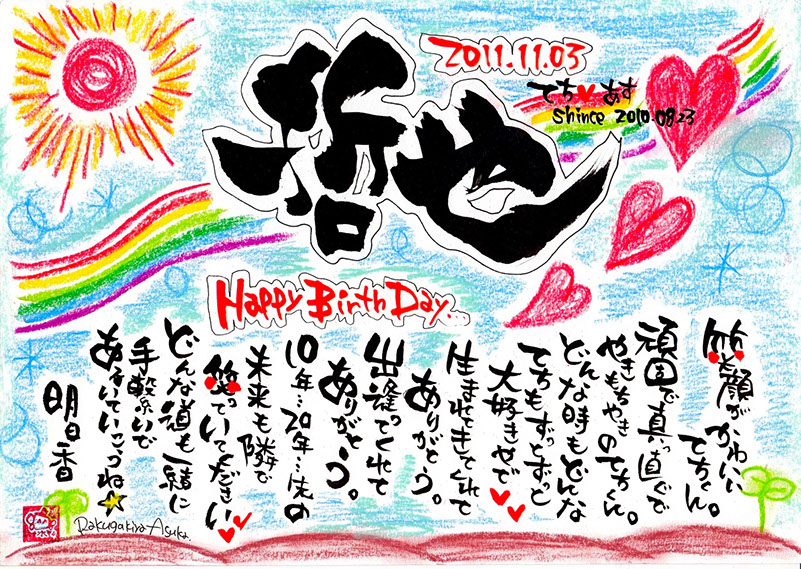 2011.11.03
てち♥あす
Shince 2010.08.23
哲也
Happy Birth Day...
笑顔がかわいい
てちくん。
頑固で真っ直ぐで
やきもちやきのてちくん。
どんな時もどんな
てちもずっとずっと
大好きやで
生まれてきてくれて
ありがとう。
出逢ってくれて
ありがとう。
10年…20年…先の
未来も隣で
笑っていてください
どんな道も一緒に
手繋いで
あるいていこうね☆
明日香
Rakugakiya Asuka